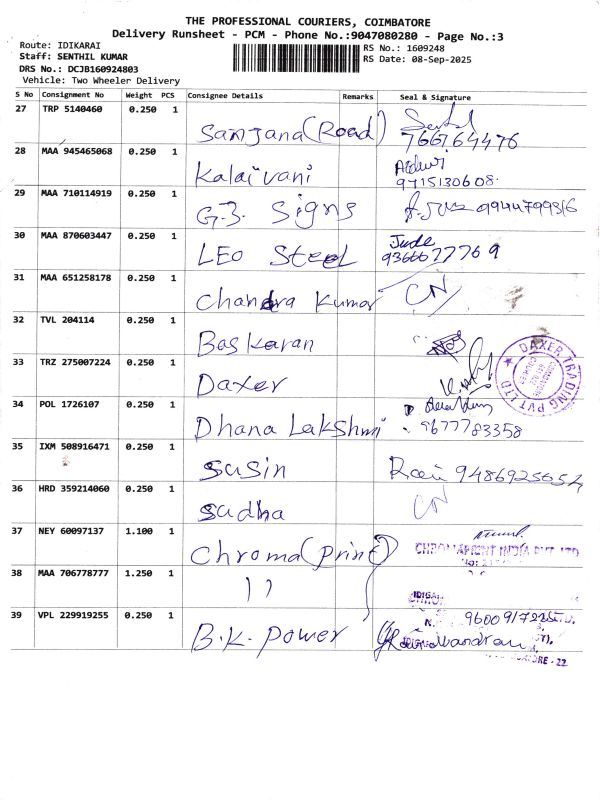 THE PROFESSIONAL COURIERS, COIMBATORE
Delivery Runsheet - PCM - Phone No.:9047080280 - Page No.:3
Route: IDIKARAI
RS No.: 1609248
Staff: SENTHIL KUMAR
RS Date: 08-Sep-2025
DRS No.: DCJB160924803
Vehicle: Two Wheeler Delivery
S No Consignment No Weight PCS Consignee Details Remarks Seal & Signature
27 TRP 5140460 0.250 1 Sanjana (Road)
28 MAA 945465068 0.250 1 Kalaivani 9715130608
29 MAA 710114919 0.250 1 G3 Signs 9944799316
30 MAA 870603447 0.250 1 LEO Steel Jude
31 MAA 651258178 0.250 1 Chandra Kumar CN
32 TVL 204114 0.250 1 Baskaran
33 TRZ 275007224 0.250 1 Daxer
DAXER TRADING PVT LTD
34 POL 1726107 0.250 1 Dhana Lakshmi 9677783358
35 IXM 508916471 0.250 1 Susin
36 HRD 359214060 0.250 1 Sudha CN
37 NEY 60097137 1.100 1 Chroma (Print)
CHROMAPRINT INDIA PVT LTD
38 MAA 706778777 1.250 1 11
39 VPL 229919255 0.250 1 B.K. Power